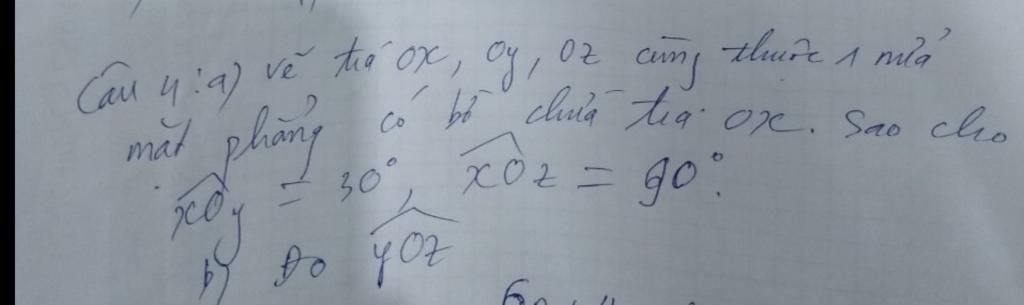 Câu 4: a) vẽ tia ox, oy, oz cùng thuộc 1 nửa
mặt phẳng có bờ chứa tia ox. Sao cho
xOy = 30°, xOz = 90°.
b) Đo yOz